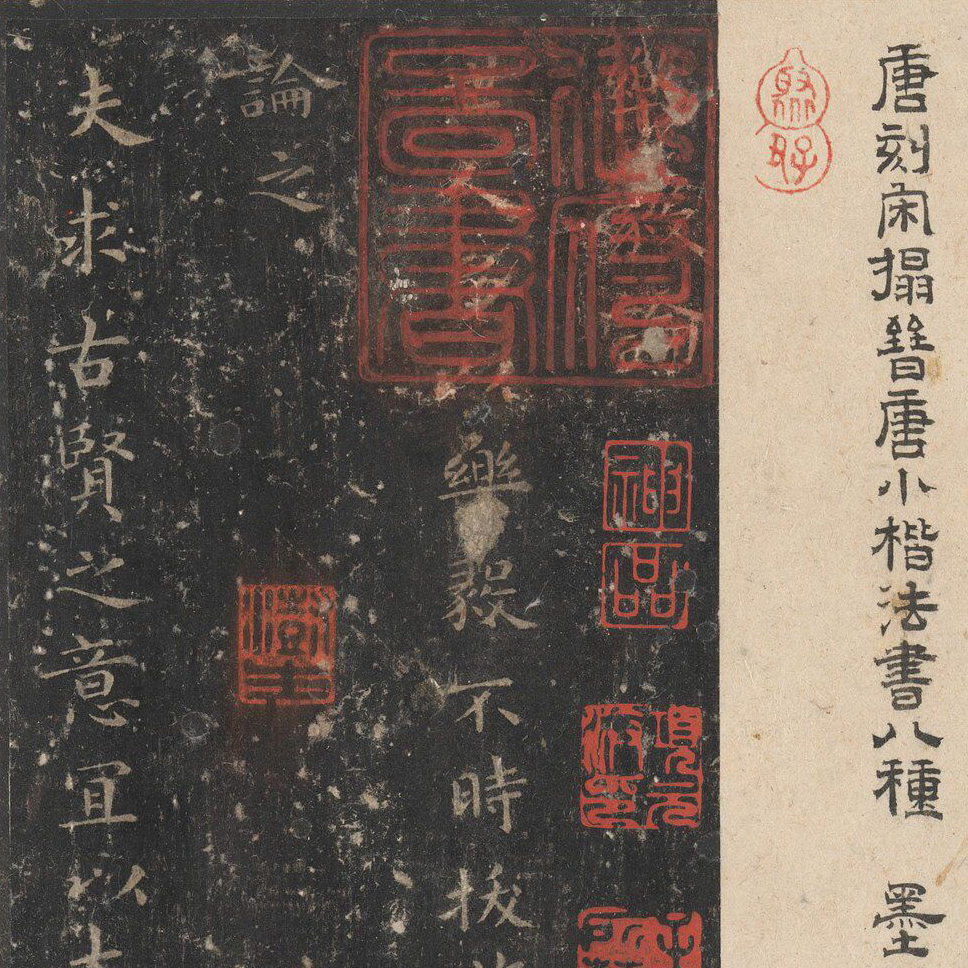 唐刻宋搨晉唐小楷法書八種 墨
神品
項元汴印
樂毅不時拔
論之
夫求古賢之意宜以大